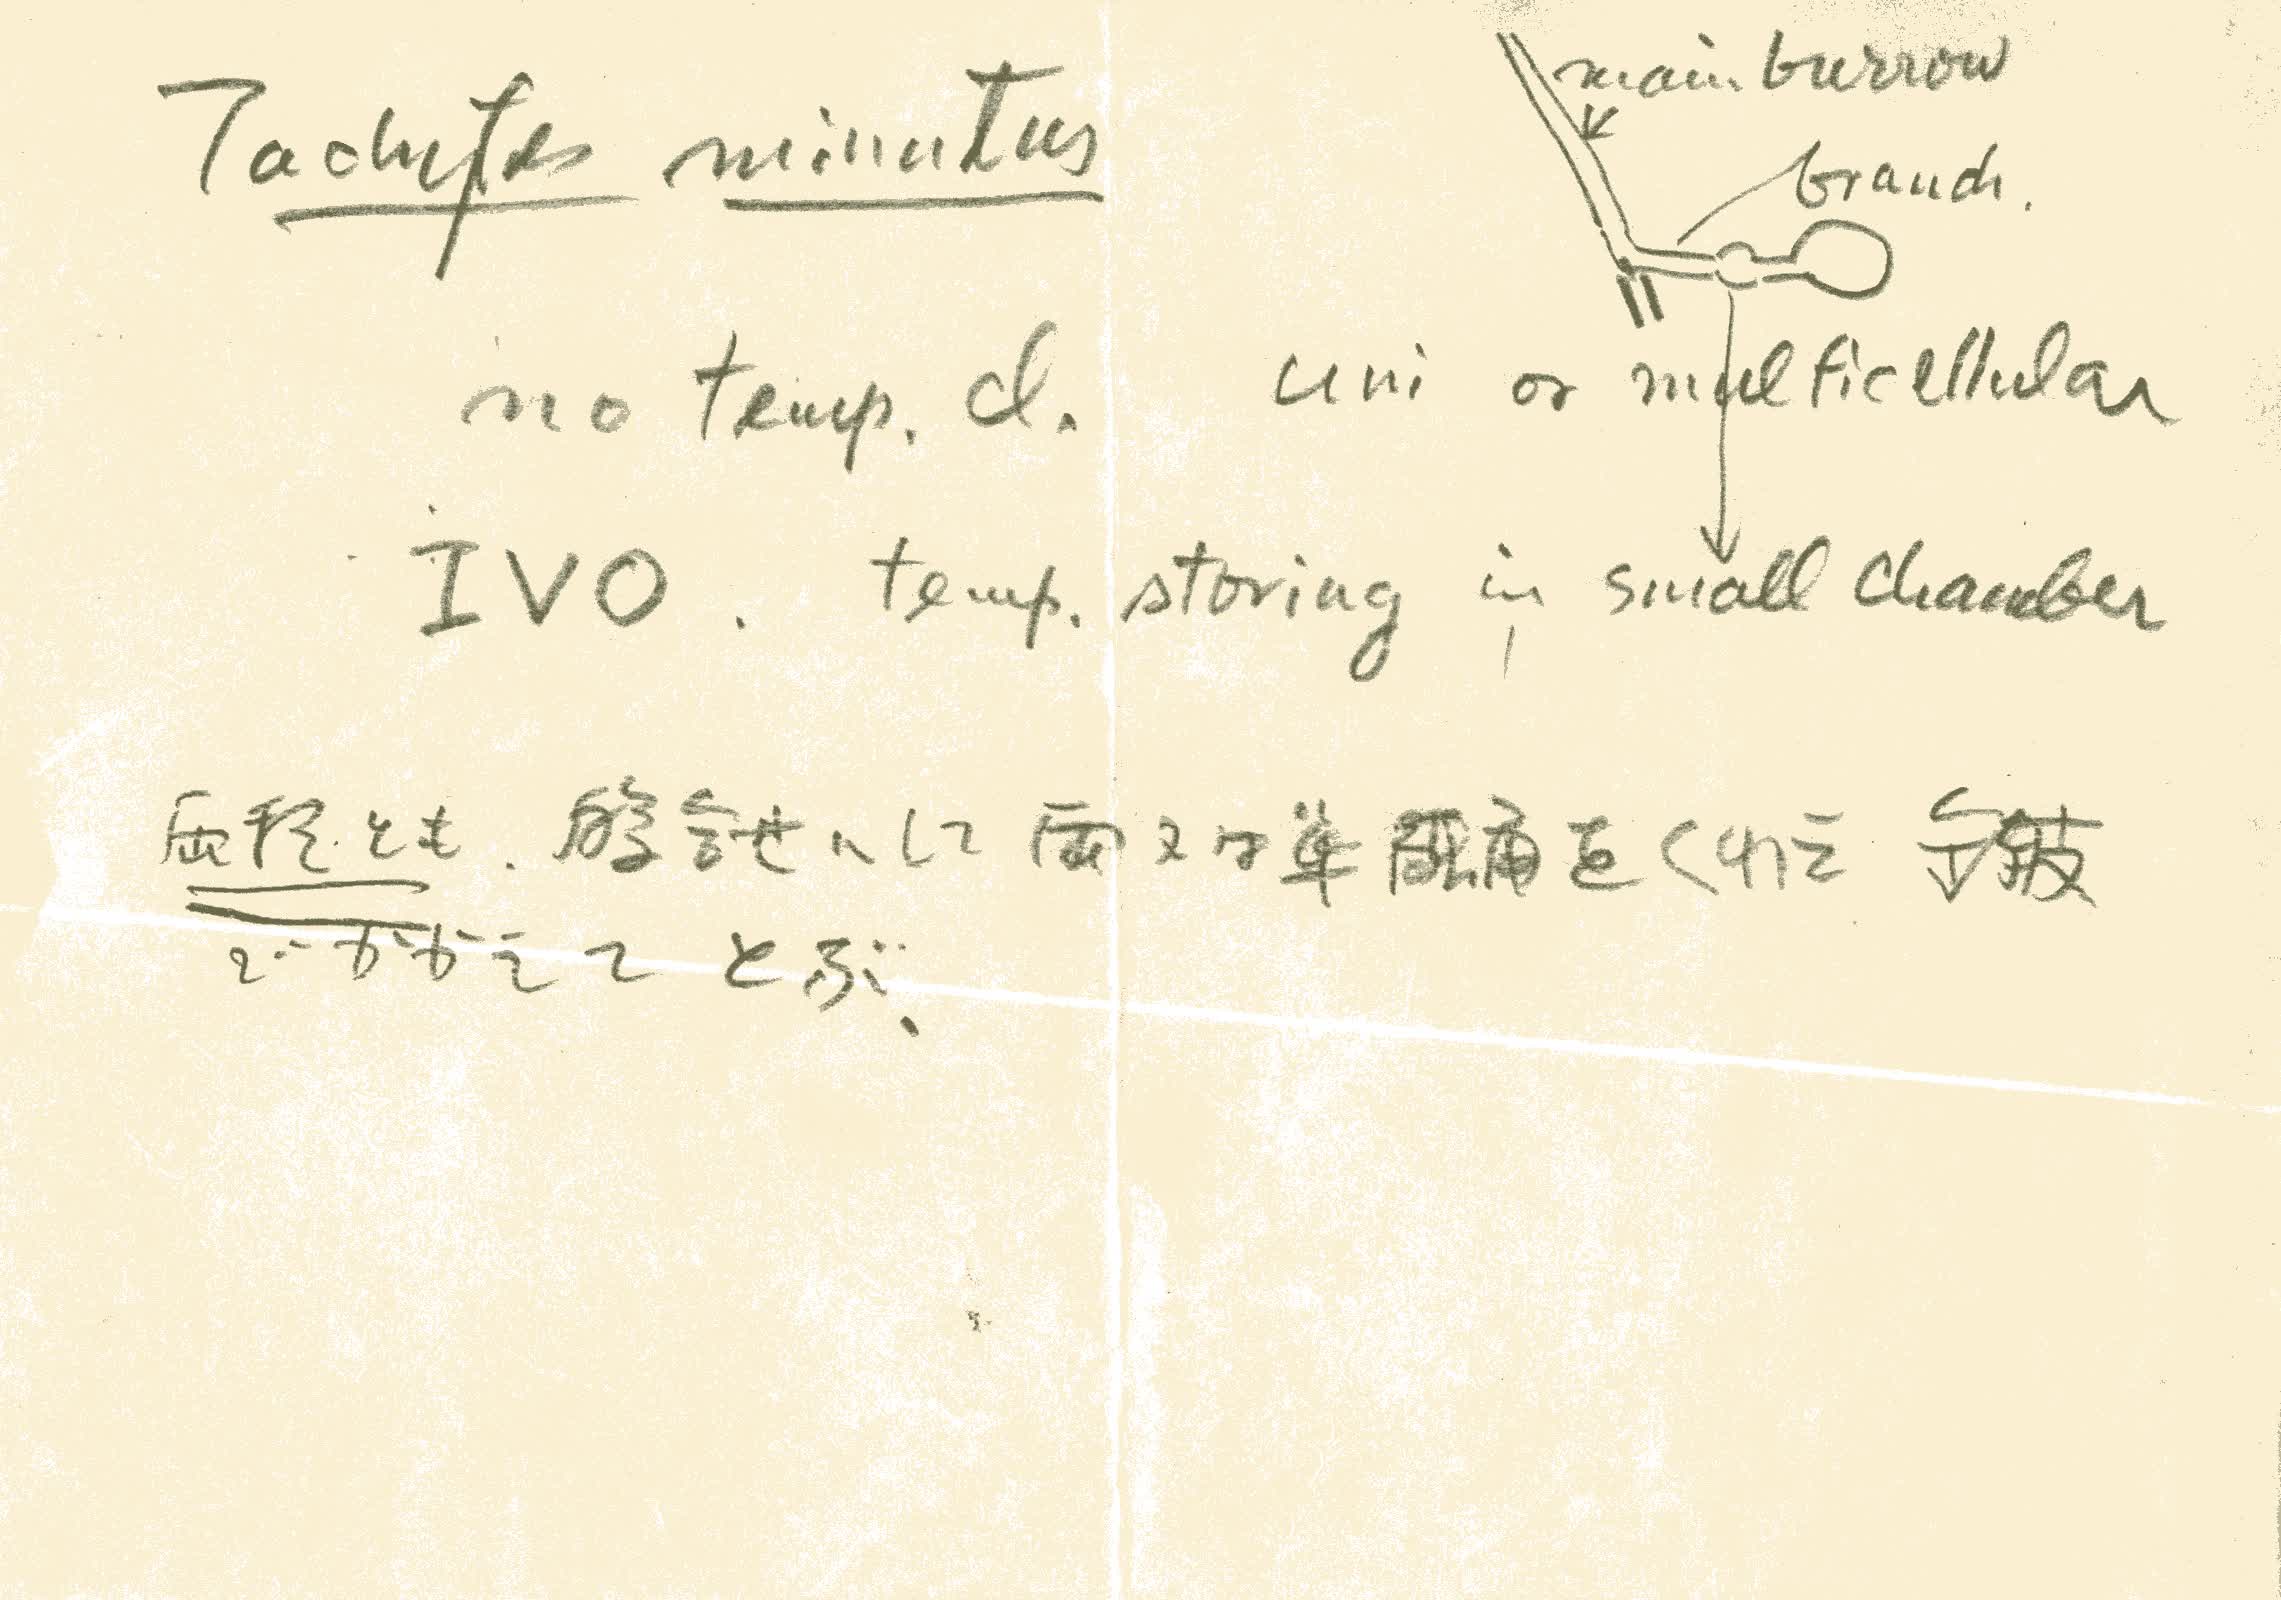 Tachytes minutus
main burrow
branch.
no temp. cl. uni or multicellular
IVO. temp. storing in small chamber
とも. 合せにして 又は単 をくわえ
でかかえて とぶ.